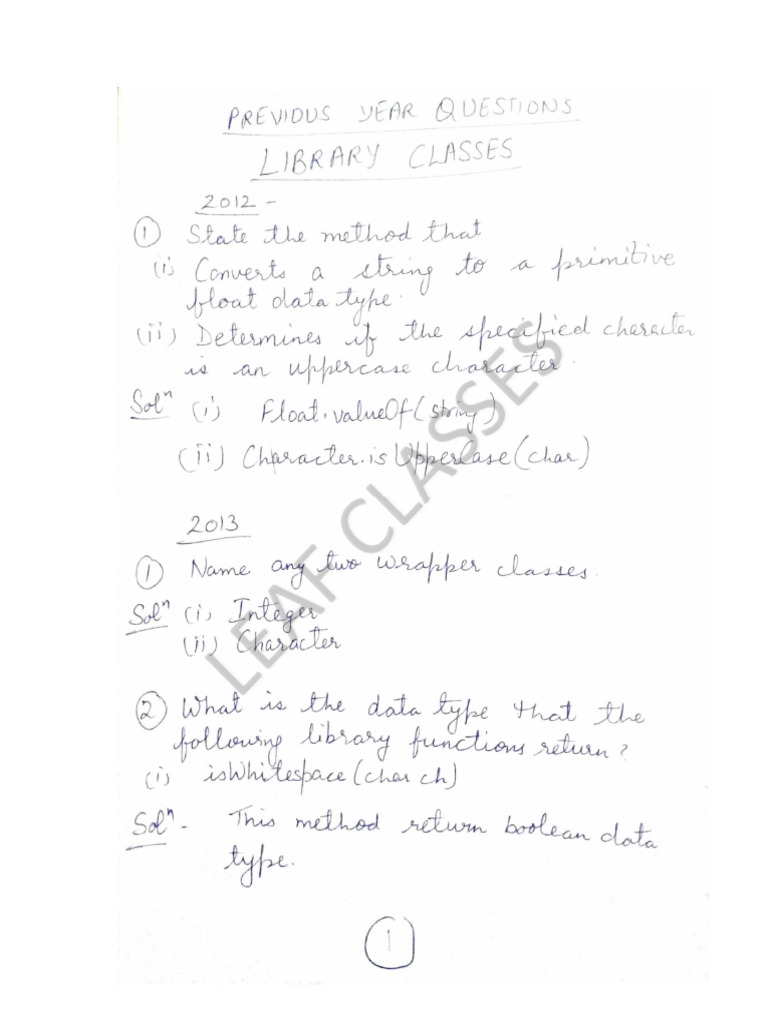 PREVIOUS YEAR QUESTIONS
LIBRARY CLASSES
2012 -
① State the method that
(i) Converts a string to a primitive
float data type.
(ii) Determines if the specified character
is an uppercase character.
Solⁿ (i) Float.valueOf(string)
(ii) Character.isUpperCase(char)
2013
① Name any two wrapper classes.
Solⁿ (i) Integer
(ii) Character
② What is the data type that the
following library functions return?
(i) isWhitespace(char ch)
Solⁿ - This method return boolean data
type.
1
LEAF CLASSES